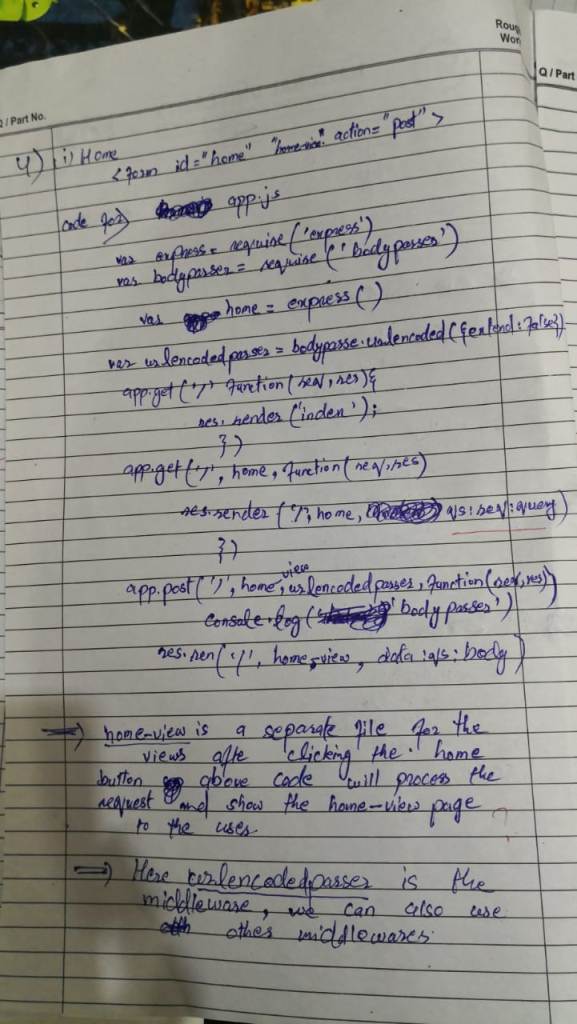 Rough
Work
Q / Part No.
Q / Part
4) i) Home
<form id="home" action="post">
code for app.js
var express = require('express')
var bodyparser = require('bodyparser')
var home = express()
var urlencodedparser = bodyparse.urlencoded({extend: false})
app.get('/' function(req, res){
res.render('index');
})
app.get('/', home, function(req, res)
res.render('/', home, qs: req: query)
})
app.post('/', home, view urlencodedparser, function(req, res))
console.log('bodyparser')
res.ren('/', home-view, data: qs: body)
⇒ home-view is a separate file for the
views afte clicking the home
button above code will process the
request and show the home-view page
to the user
⇒ Here urlencodedparser is the
middleware, we can also use
other middlewares